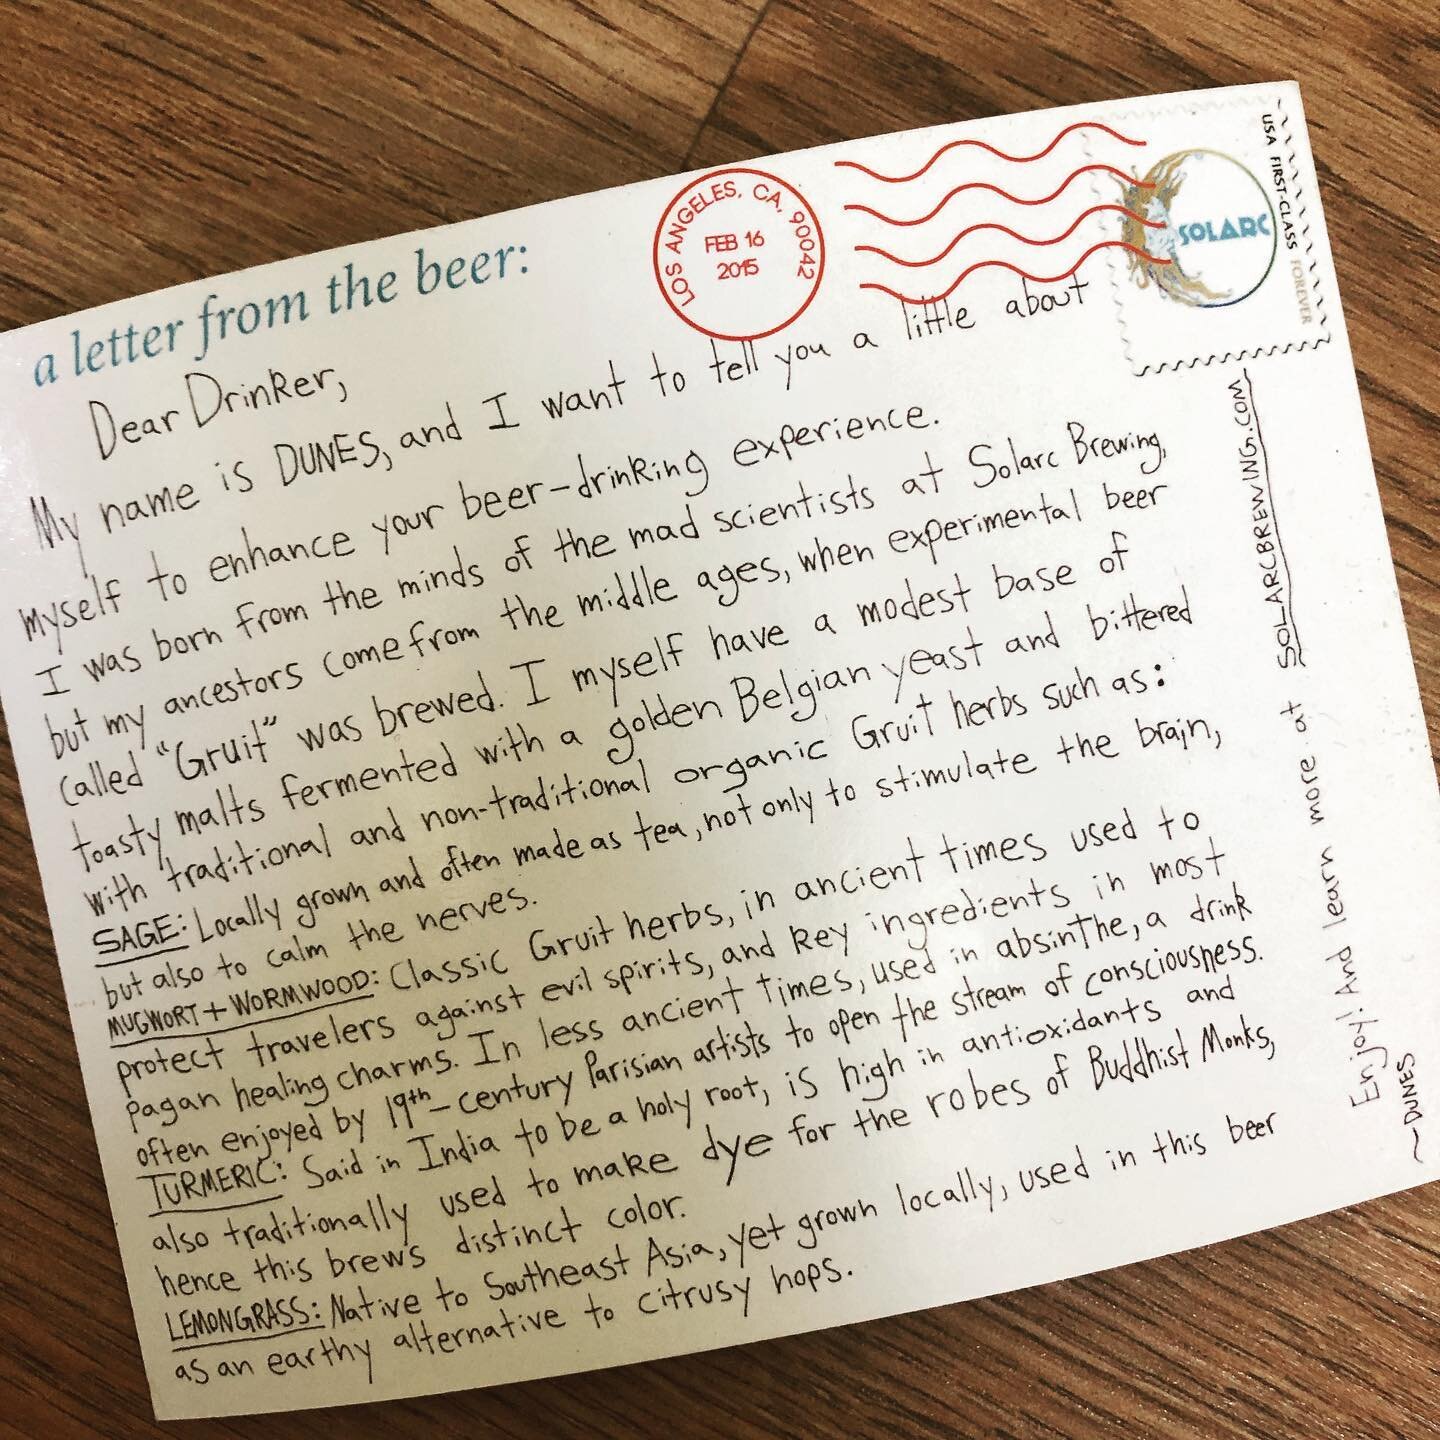 a letter from the beer:
LOS ANGELES, CA, 90042
FEB 16
2015
SOLARC
USA FIRST-CLASS FOREVER
Dear Drinker,
My name is DUNES, and I want to tell you a little about
myself to enhance your beer-drinking experience.
I was born from the minds of the mad scientists at Solarc Brewing,
but my ancestors come from the middle ages, when experimental beer
called "Gruit" was brewed. I myself have a modest base of
toasty malts fermented with a golden Belgian yeast and bittered
with traditional and non-traditional organic Gruit herbs such as:
SAGE: Locally grown and often made as tea, not only to stimulate the brain,
but also to calm the nerves.
MUGWORT + WORMWOOD: Classic Gruit herbs, in ancient times used to
protect travelers against evil spirits, and key ingredients in most
pagan healing charms. In less ancient times, used in absinthe, a drink
often enjoyed by 19th-century Parisian artists to open the stream of consciousness.
TURMERIC: Said in India to be a holy root, is high in antioxidants and
also traditionally used to make dye for the robes of Buddhist Monks,
hence this brew's distinct color.
LEMONGRASS: Native to Southeast Asia, yet grown locally, used in this beer
as an earthy alternative to citrusy hops.
Enjoy! And learn more at SOLARCBREWING.COM
~DUNES